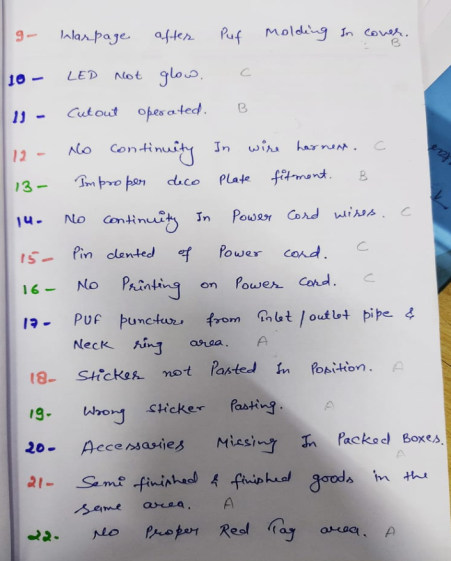 9- Warpage after Puf Molding In cover.
B
10- LED Not glow. C
11- Cutout operated. B
12- No continuity In wire harness. C
13- Improper deco Plate fitment. B
14- No continuity In Power Cord wires. C
15- Pin dented of Power cord. C
16- No Printing on Power Cord. C
17- PUF puncture from Inlet/outlet pipe &
Neck ring area. A
18- Sticker not Pasted In Position. A
19- Wrong Sticker Pasting. A
20- Accessaries Missing In Packed Boxes.
A
21- Semi finished & finished goods in the
same area. A
22- No Proper Red Tag area. A